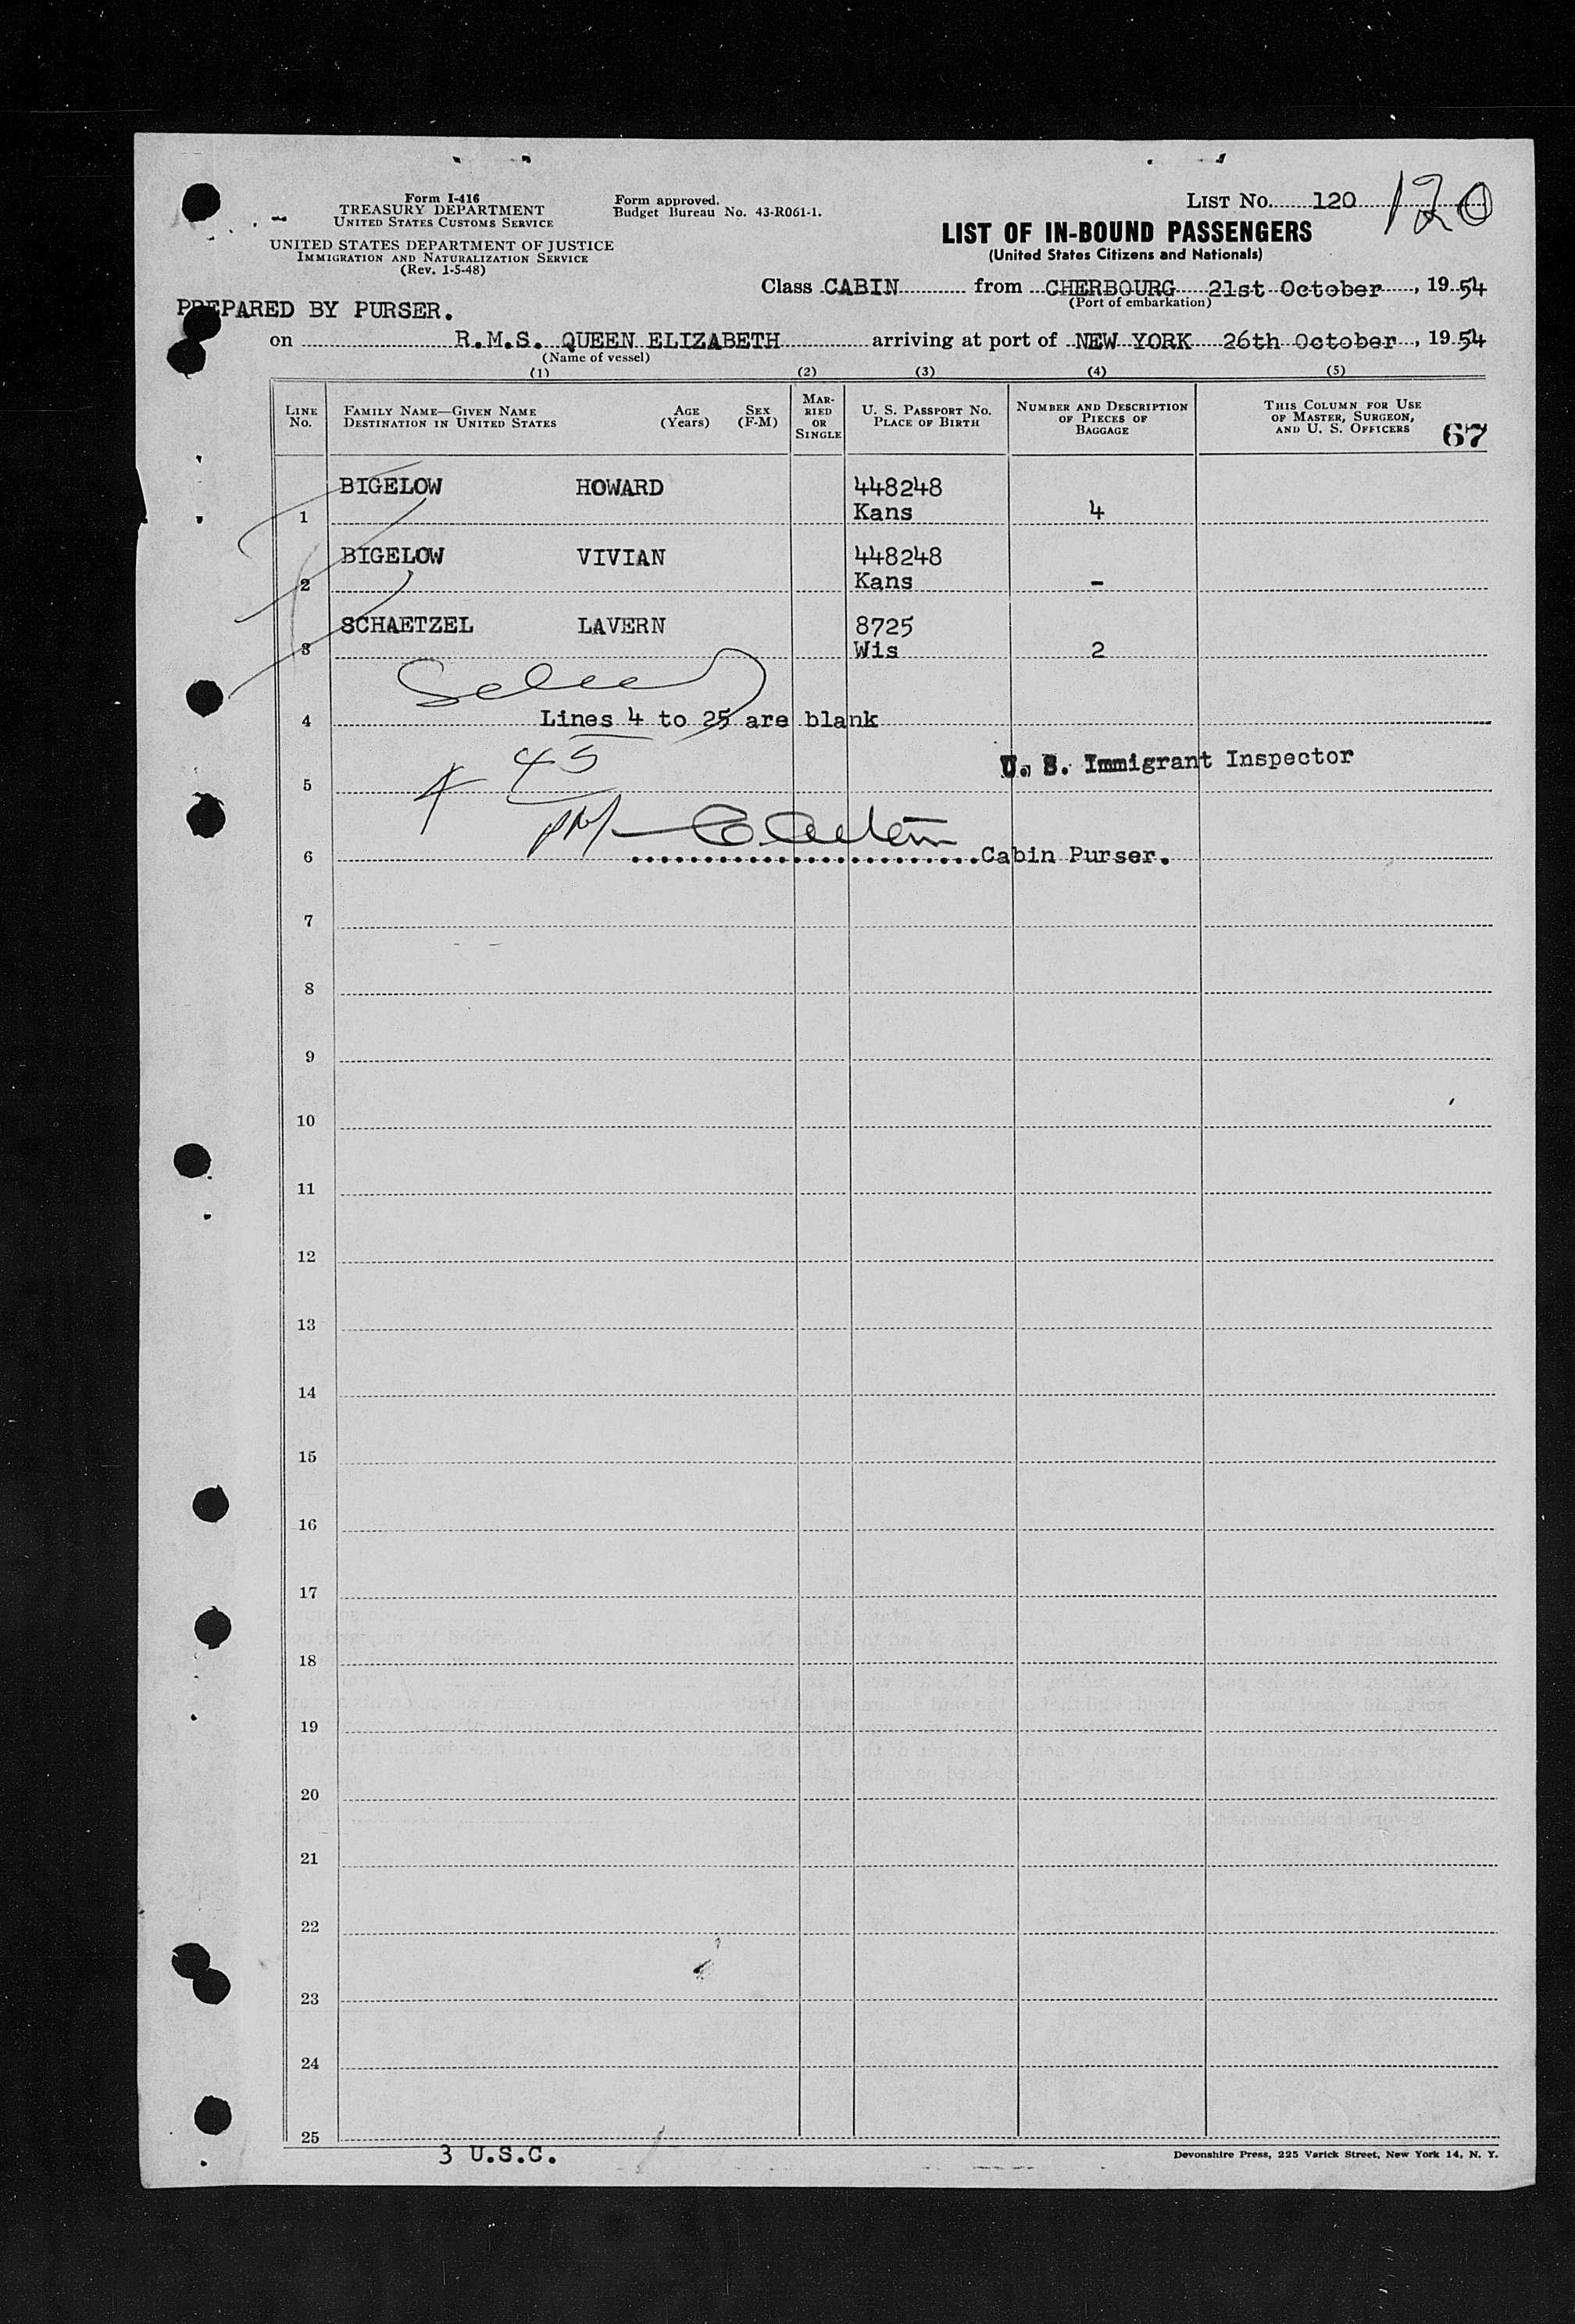 Form I-416
TREASURY DEPARTMENT
UNITED STATES CUSTOMS SERVICE
UNITED STATES DEPARTMENT OF JUSTICE
IMMIGRATION AND NATURALIZATION SERVICE
(Rev. 1-5-48)
Form approved.
Budget Bureau No. 43-R061-1.
LIST NO. 120 120
LIST OF IN-BOUND PASSENGERS
(United States Citizens and Nationals)
Class CABIN from CHERBOURG 21st October, 1954
(Port of embarkation)
PREPARED BY PURSER.
on R.M.S. QUEEN ELIZABETH arriving at port of NEW YORK 26th October, 1954
(Name of vessel)
(1) (2) (3) (4) (5)
LINE NO. FAMILY NAME—GIVEN NAME DESTINATION IN UNITED STATES AGE (Years) SEX (F-M) MARRIED OR SINGLE U. S. PASSPORT NO. PLACE OF BIRTH NUMBER AND DESCRIPTION OF PIECES OF BAGGAGE THIS COLUMN FOR USE OF MASTER, SURGEON, AND U. S. OFFICERS 67
BIGELOW HOWARD 448248
1 Kans 4
BIGELOW VIVIAN 448248
2 Kans -
SCHAETZEL LAVERN 8725
3 Wis 2
4 Lines 4 to 25 are blank
45
U. S. Immigrant Inspector
5
6 Cabin Purser.
7
8
9
10
11
12
13
14
15
16
17
18
19
20
21
22
23
24
25
3 U.S.C.
Devonshire Press, 225 Varick Street, New York 14, N. Y.